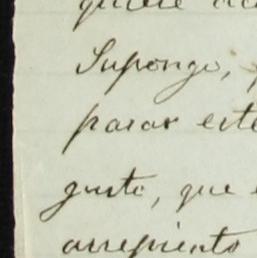 quiere
Supongo,
pasar este
gusto, que
arrepiento